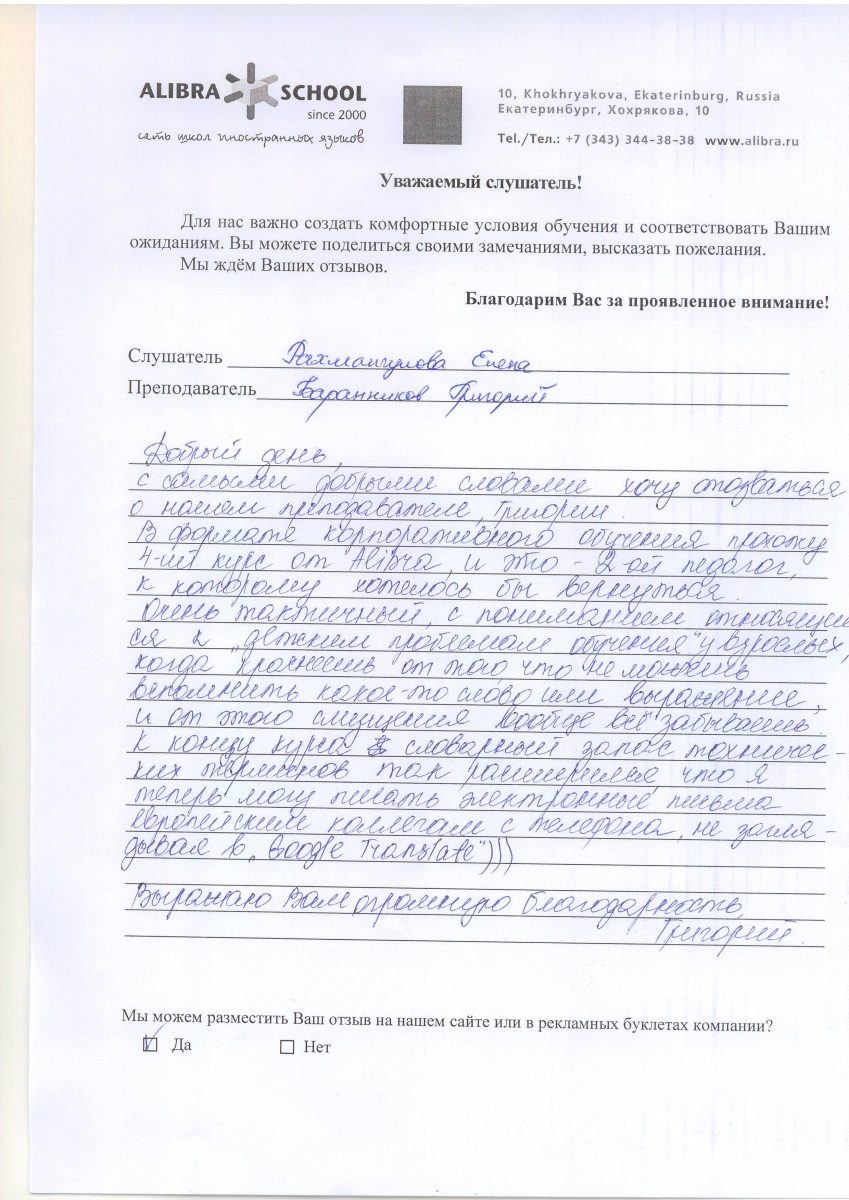 ALIBRA SCHOOL
since 2000
сеть школ иностранных языков
10, Khokhryakova, Ekaterinburg, Russia
Екатеринбург, Хохрякова, 10
Tel./Тел.: +7 (343) 344-38-38 www.alibra.ru
Уважаемый слушатель!
Для нас важно создать комфортные условия обучения и соответствовать Вашим
ожиданиям. Вы можете поделиться своими замечаниями, высказать пожелания.
Мы ждём Ваших отзывов.
Благодарим Вас за проявленное внимание!
Слушатель Рахмангулова Елена
Преподаватель Баранников Григорий
Добрый день,
с самыми добрыми словами хочу отозваться
о нашем преподавателе, Григории.
В формате корпоративного обучения прохожу
4-ий курс от Alibra, и это - 2-ой педагог,
к которому хотелось бы вернуться.
Очень тактичный, с пониманием относящий
ся к „детским проблемам обучения" у взрослых,
когда краснеешь от того что не можешь
вспомнить какое-то слово или выражение,
и от этого смущения вообще всё забываешь.
К концу курса словарный запас техничес-
ких терминов так расширился, что я
теперь могу писать электронные письма
европейским коллегам с телефона, не загля-
дывая в „Google Translate")))
Выражаю Вам огромную благодарность,
Григорий.
Мы можем разместить Ваш отзыв на нашем сайте или в рекламных буклетах компании?
Да Нет